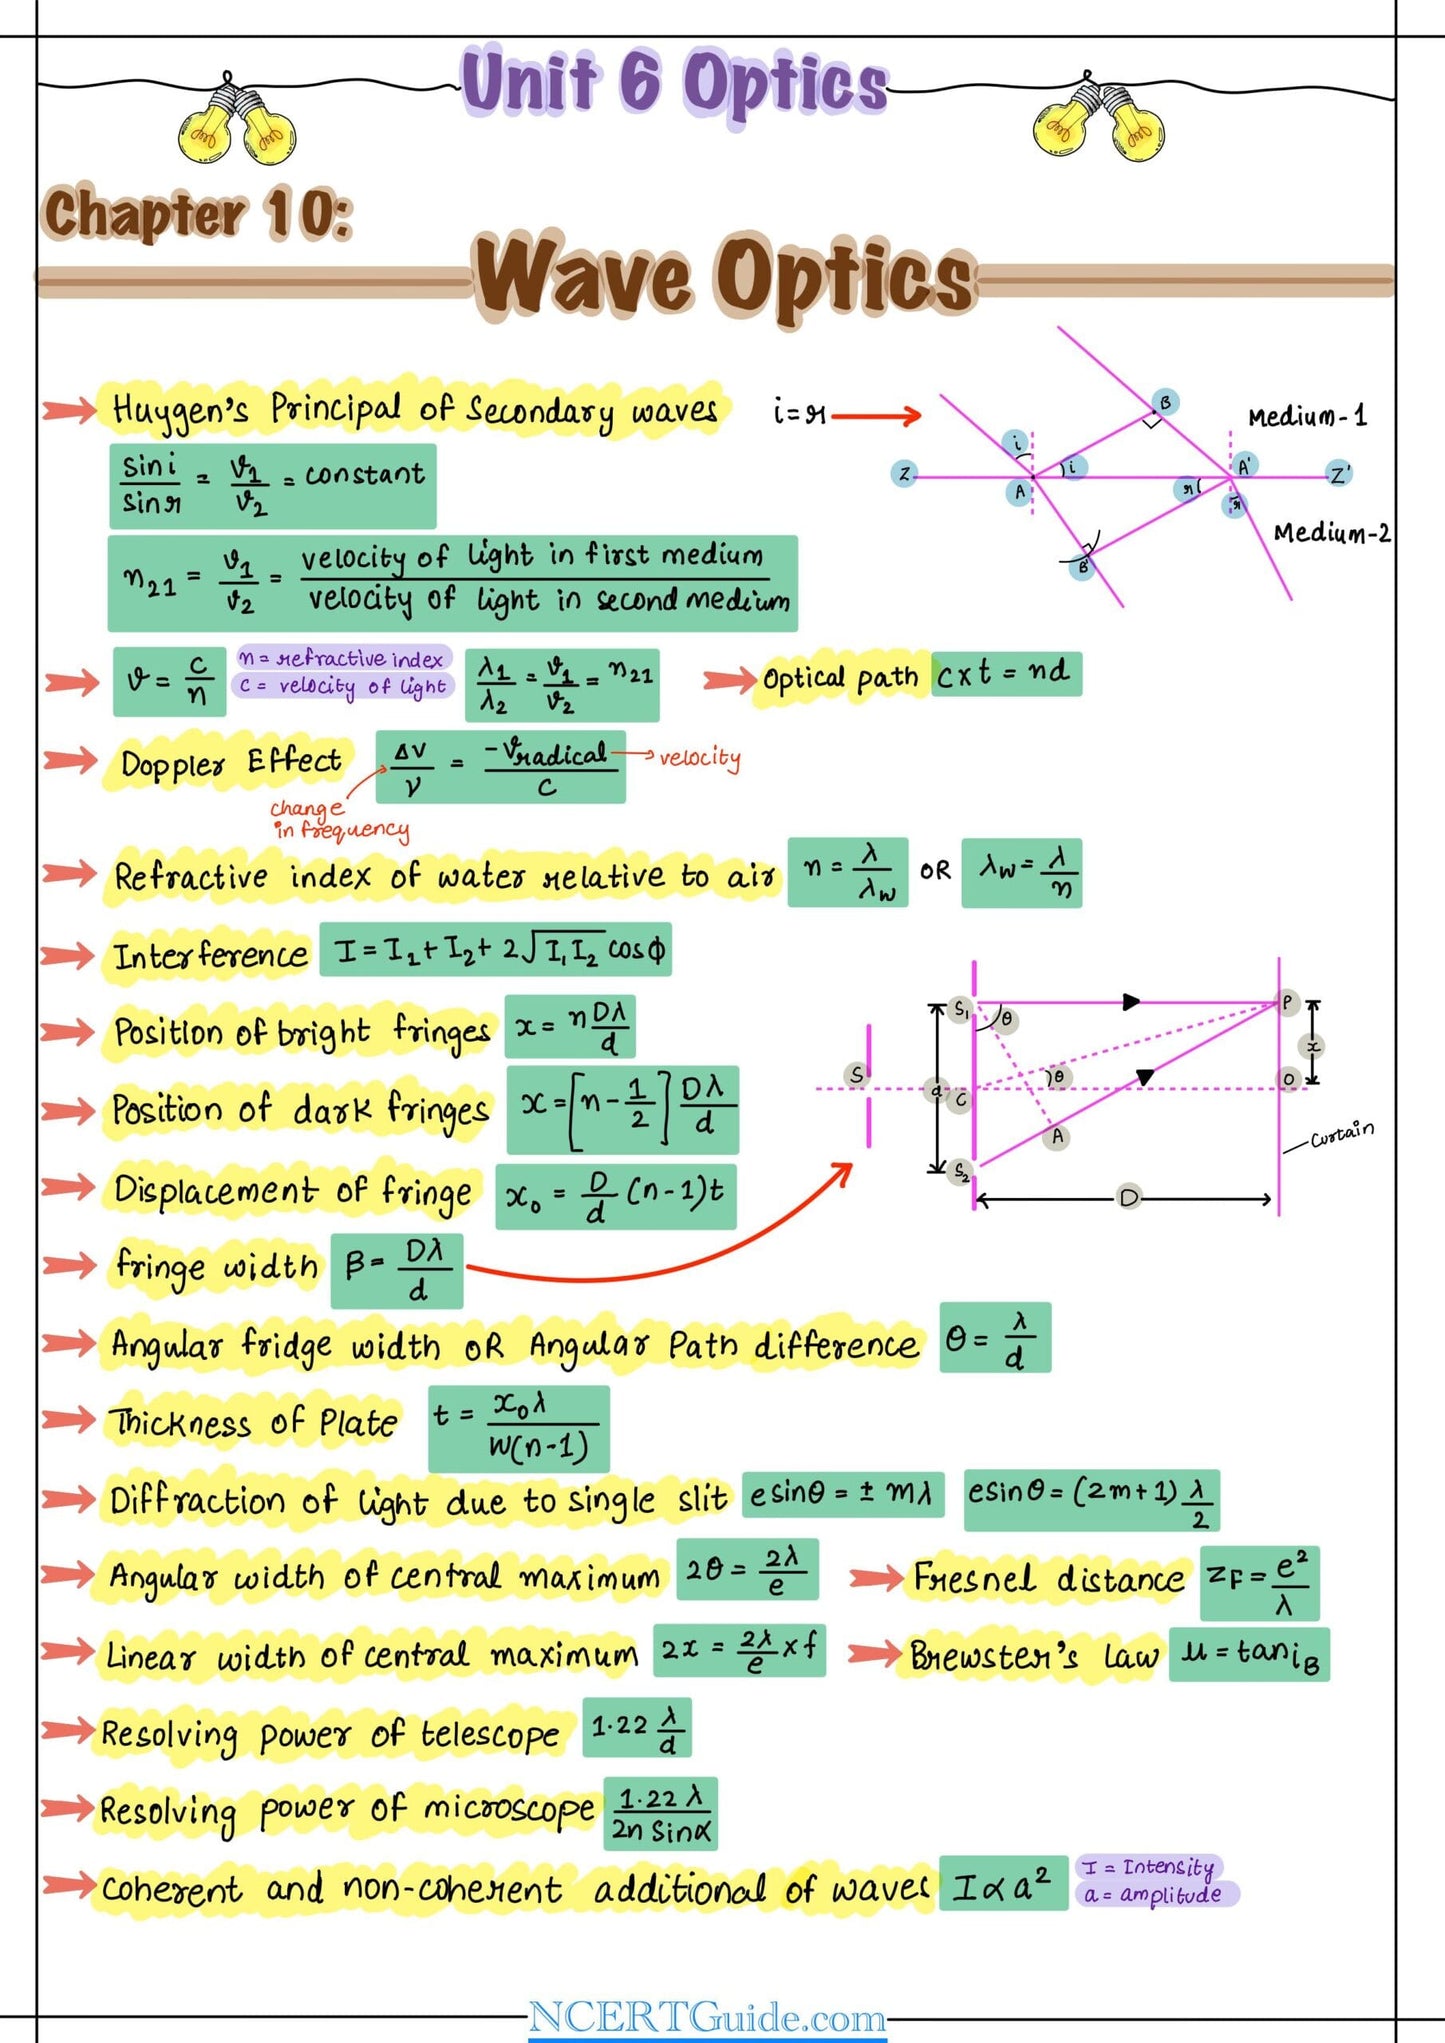 Unit 6 Optics
Chapter 10:
Wave Optics
Huygen's Principal of Secondary waves i=r
sin i / sin r = v₁/v₂ = constant
n₂₁ = v₁/v₂ = velocity of light in first medium / velocity of light in second medium
B Medium-1
i
Z A i r A' Z'
r
Medium-2
B'
v = c/n n = refractive index
c = velocity of light
λ₁/λ₂ = v₁/v₂ = n₂₁ Optical path c×t = nd
Doppler Effect Δν/ν = -v radical/c velocity
change
in frequency
Refractive index of water relative to air n = λ/λw OR λw = λ/n
Interference I = I₁ + I₂ + 2√I₁I₂ cosϕ
Position of bright fringes x = nDλ/d
Position of dark fringes x = [n - 1/2] Dλ/d
Displacement of fringe x₀ = D/d (n-1)t
fringe width β = Dλ/d
S₁ θ P
x
S d C θ O
A
Curtain
S₂
D
Angular fridge width OR Angular Path difference θ = λ/d
Thickness of Plate t = x₀λ / W(n-1)
Diffraction of light due to single slit esinθ = ± mλ esinθ = (2m+1) λ/2
Angular width of central maximum 2θ = 2λ/e Fresnel distance ZF = e²/λ
Linear width of central maximum 2x = 2λ/e × f Brewster's law μ = tan iB
Resolving power of telescope 1.22 λ/d
Resolving power of microscope 1.22 λ / 2n Sinα
Coherent and non-coherent additional of waves I ∝ a² I = Intensity
a = amplitude
NCERTGuide.com